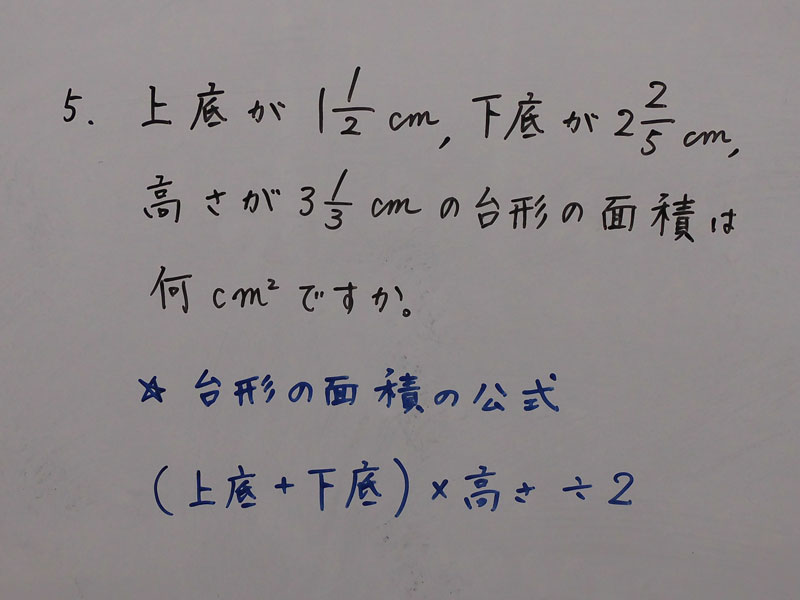 5. 上底が 1 1/2 cm, 下底が 2 2/5 cm,
高さが 3 1/3 cm の台形の面積は
何cm²ですか。
☆ 台形の面積の公式
(上底+下底)×高さ÷2